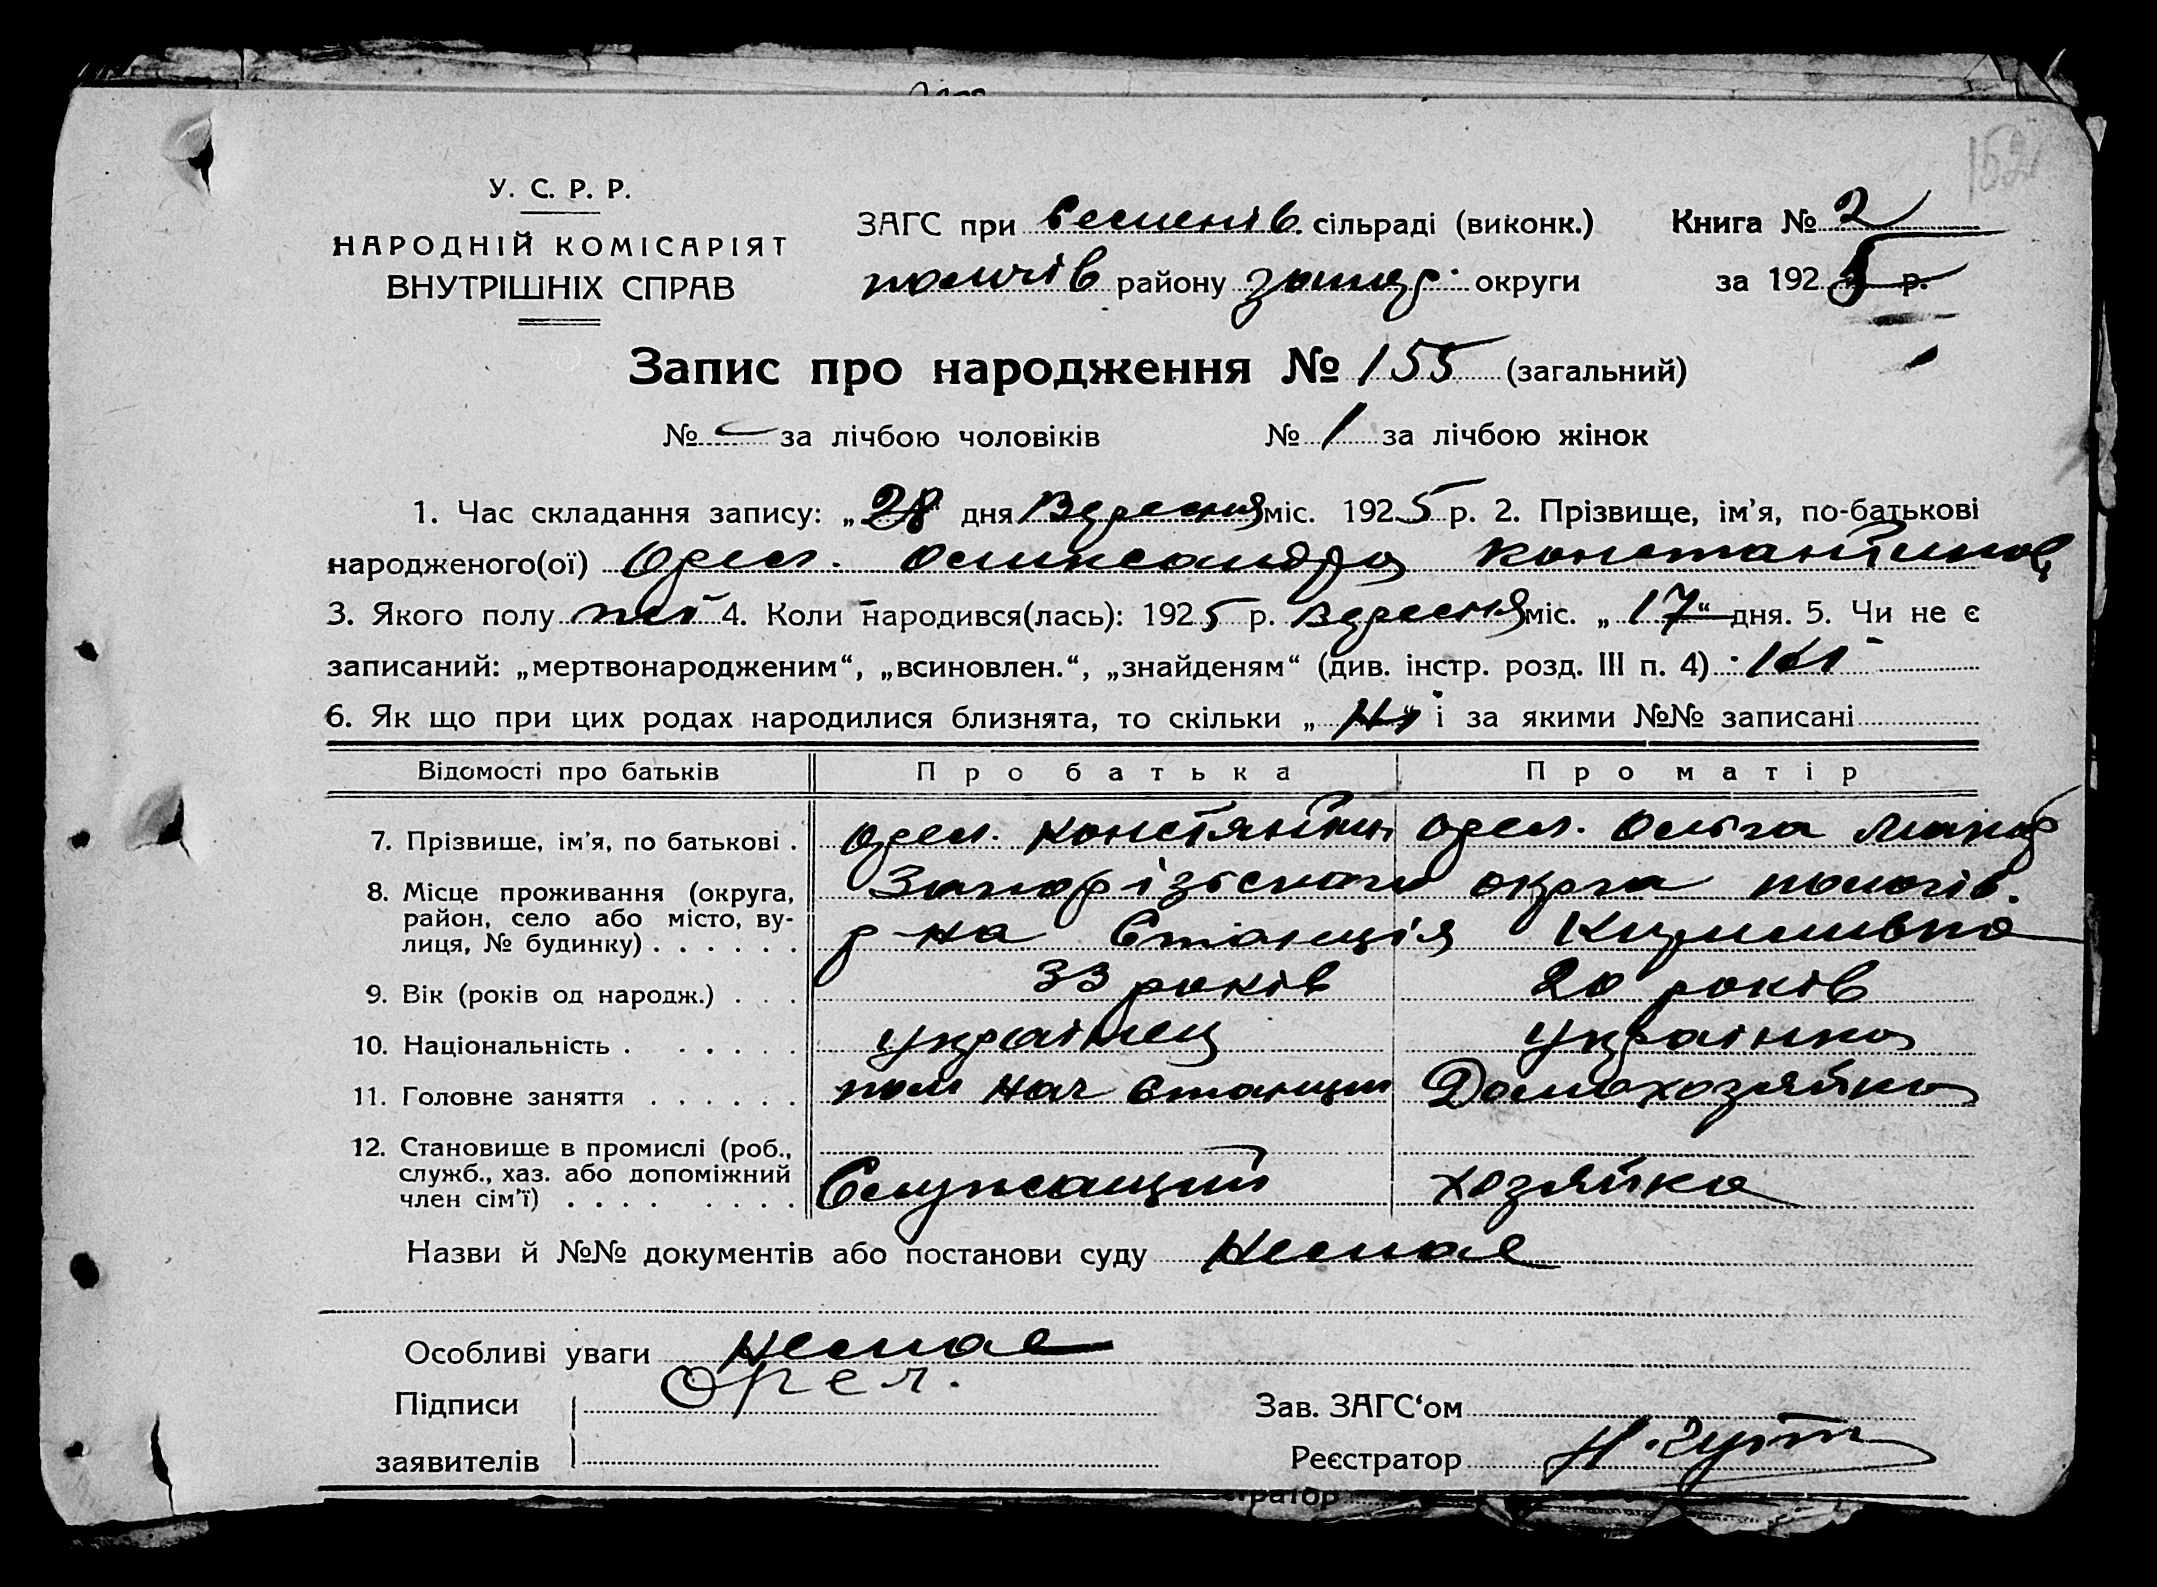 152
У. С. Р. Р.
НАРОДНІЙ КОМІСАРІЯТ
ВНУТРІШНІХ СПРАВ
ЗАГС при Семенів. сільраді (виконк.)
пологів району запор. округи
Книга № 2
за 1925 р.
Запис про народження № 155 (загальний)
№ – за лічбою чоловіків № 1 за лічбою жінок
1. Час складання запису: „28“ дня Вересня міс. 1925 р. 2. Прізвище, ім'я, по-батькові
народженого(ої) Орел. Олександра Константинов
3. Якого полу жі 4. Коли народився(лась): 1925 р. Вересня міс. „17“ дня. 5. Чи не є
записаний: „мертвонародженим“, „всиновлен.“, „знайденям“ (див. інстр. розд. III п. 4) Ні
6. Як що при цих родах народилися близнята, то скільки „Ні“ і за якими №№ записані
Відомості про батьків Про батька Про матір
7. Прізвище, ім'я, по батькові . Орел. Констянтин Орел. Ольга Макар
8. Місце проживання (округа, район, село або місто, вулиця, № будинку) . . . . . . Запорізьскої округа пологів.
р-на Станція Кирилівка
9. Вік (років од народж.) . . . 33 років 20 років
10. Національність . . . . . . українец українка
11. Головне заняття . . . . . . пом нач станции Домохозяйка
12. Становище в промислі (роб., служб., хаз. або допоміжний член сім'ї) . . . . . . . . Служащий хозяйка
Назви й №№ документів або постанови суду Немає
Особливі уваги Немає
Підписи Орел.
Зав. ЗАГС'ом
заявителів
Реєстратор